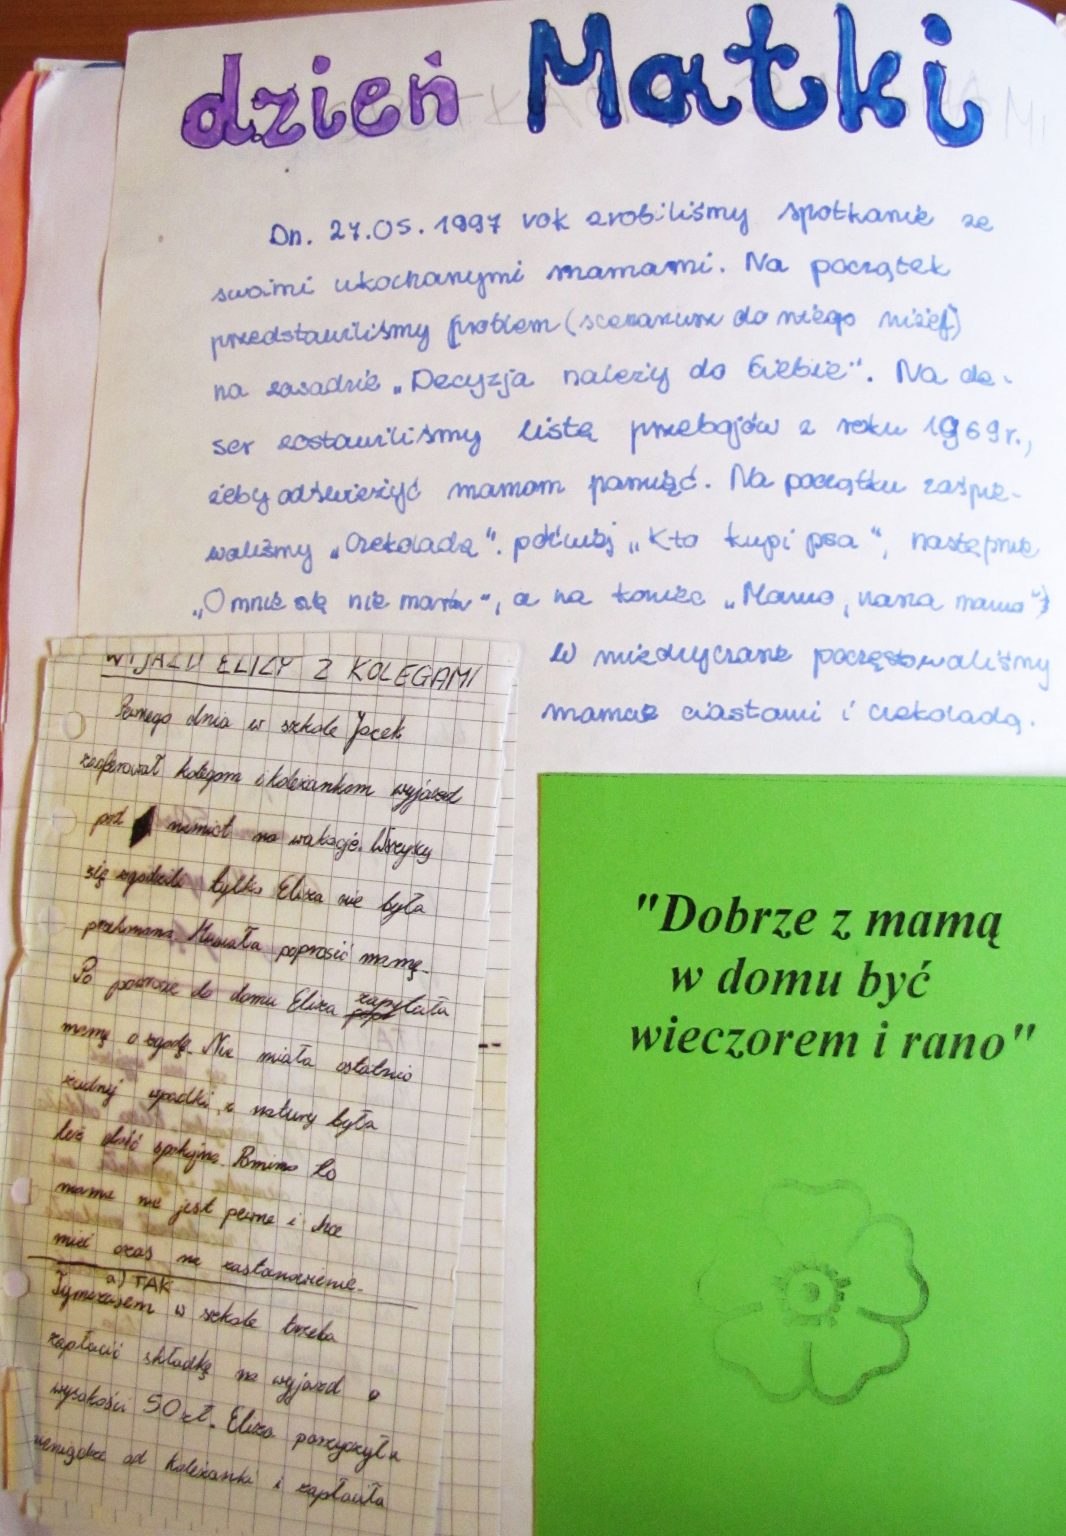 dzień Matki
Dn. 27.05.1997 rok zrobiliśmy spotkanie ze
swoimi ukochanymi mamami. Na początek
przedstawiliśmy problem (scenariusz do niego niżej)
na zasadzie „Decyzja należy do Ciebie". Na de-
ser zostawiliśmy listę przebojów z roku 1969r.,
żeby odświeżyć mamom pamięć. Na początku zaśpie-
waliśmy „Czekoladę". później „Kto kupi psa", następnie
„O mnie się nie martw", a na koniec „Mamo, nasza mamo"
W międzyczasie poczęstowaliśmy
mamusie ciastami i czekoladą.
WYJAZD ELIZY Z KOLEGAMI
Pewnego dnia w szkole Jacek
zaoferował kolegom i koleżankom wyjazd
pod namiot na wakacje. Wszyscy
się zgodzili tylko Eliza nie była
przekonana. Musiała poprosić mamę.
Po powrocie do domu Eliza zapytała
mamę o zgodę. Nie miała ostatnio
żadnej wpadki, z natury była
też dość spokojna. Pomimo to
mama nie jest pewna i chce
mieć czas na zastanowienie.
a) TAK
Tymczasem w szkole trzeba
zapłacić składkę na wyjazd o
wysokości 50 zł. Eliza pożyczyła
pieniądze od koleżanki i zapłaciła
"Dobrze z mamą
w domu być
wieczorem i rano"